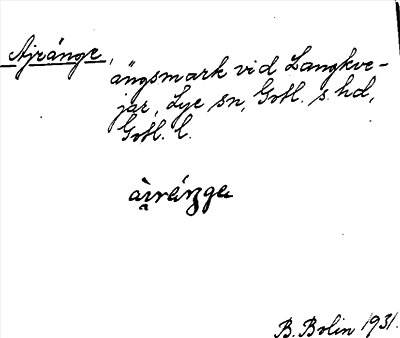 Ajränge,
ängsmark vid Langkve-
jar, Lye sn, Gotl. s. hd,
Gotl. l.
B. Bolin 1931.